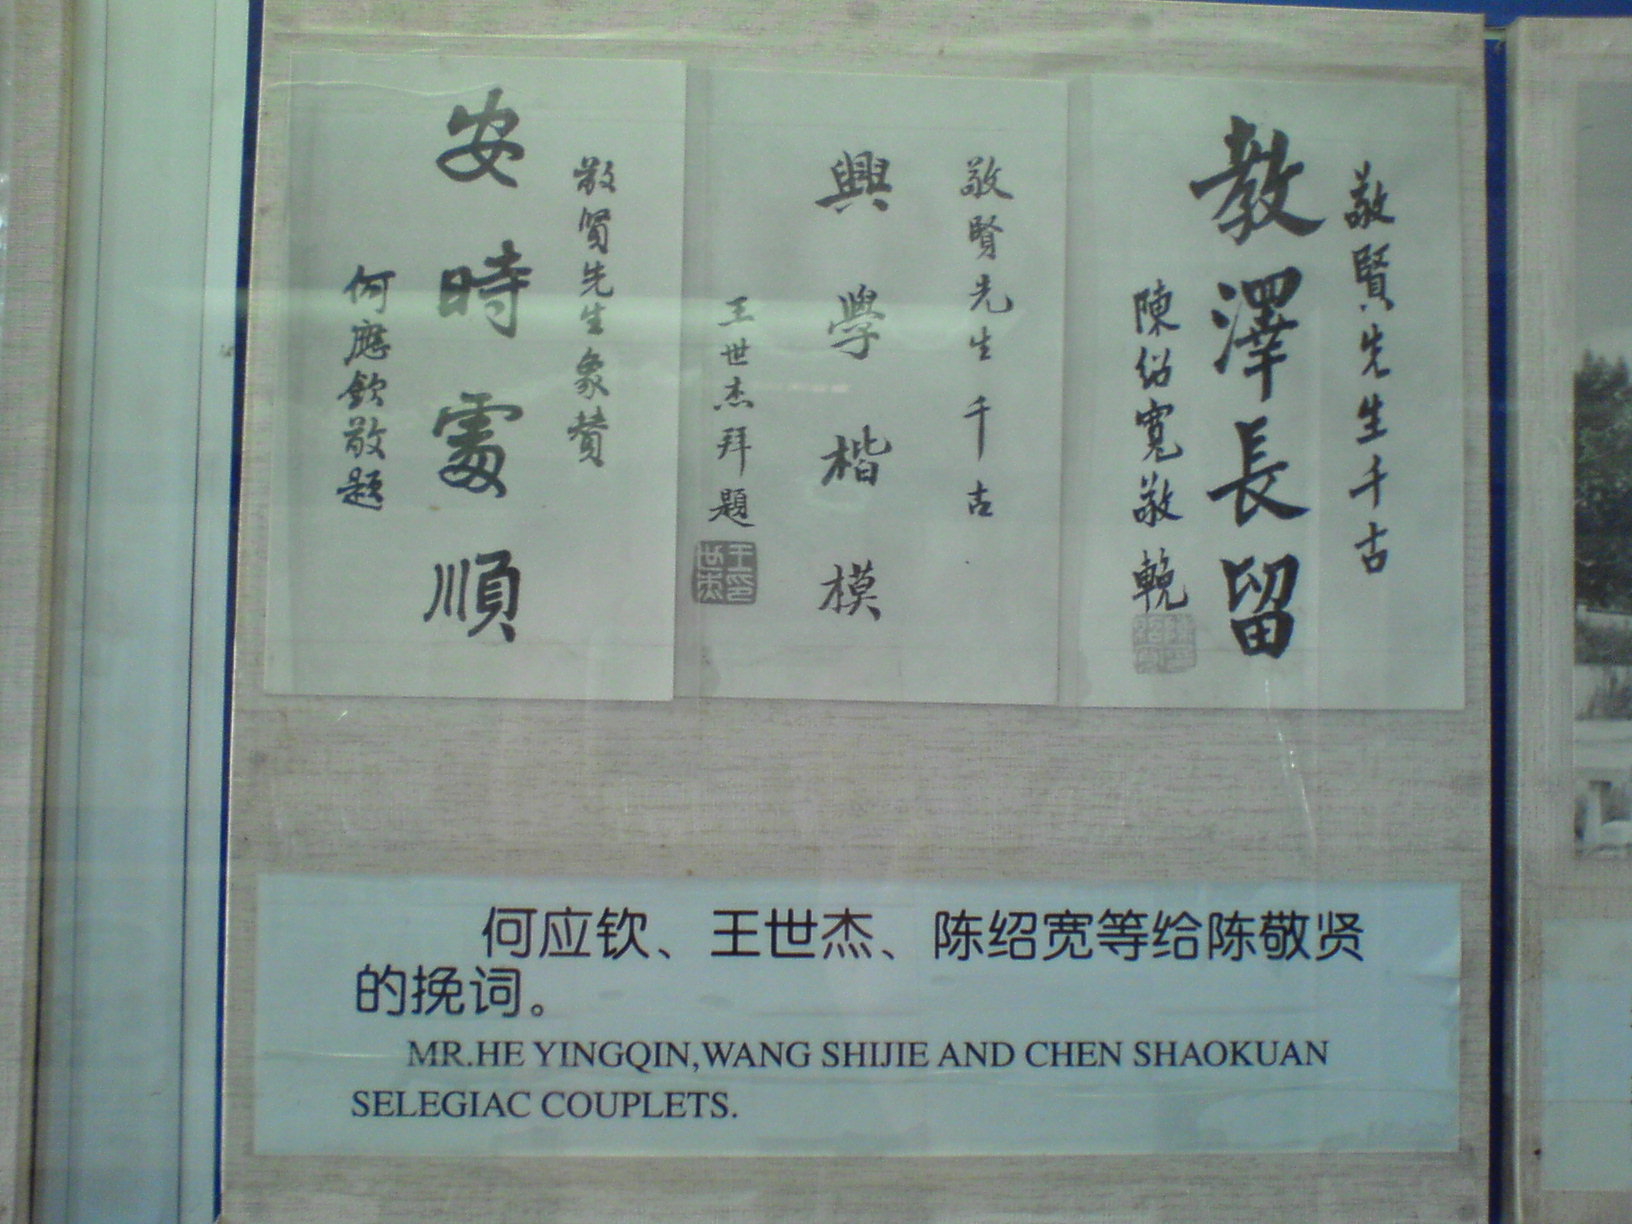 敬賢先生千古
教澤長留
陳紹寬敬輓
敬賢先生千古
興學楷模
王世杰拜題
敬賢先生象贊
安時處順
何應欽敬題
何应钦、王世杰、陈绍宽等给陈敬贤
的挽词。
MR.HE YINGQIN,WANG SHIJIE AND CHEN SHAOKUAN
SELEGIAC COUPLETS.